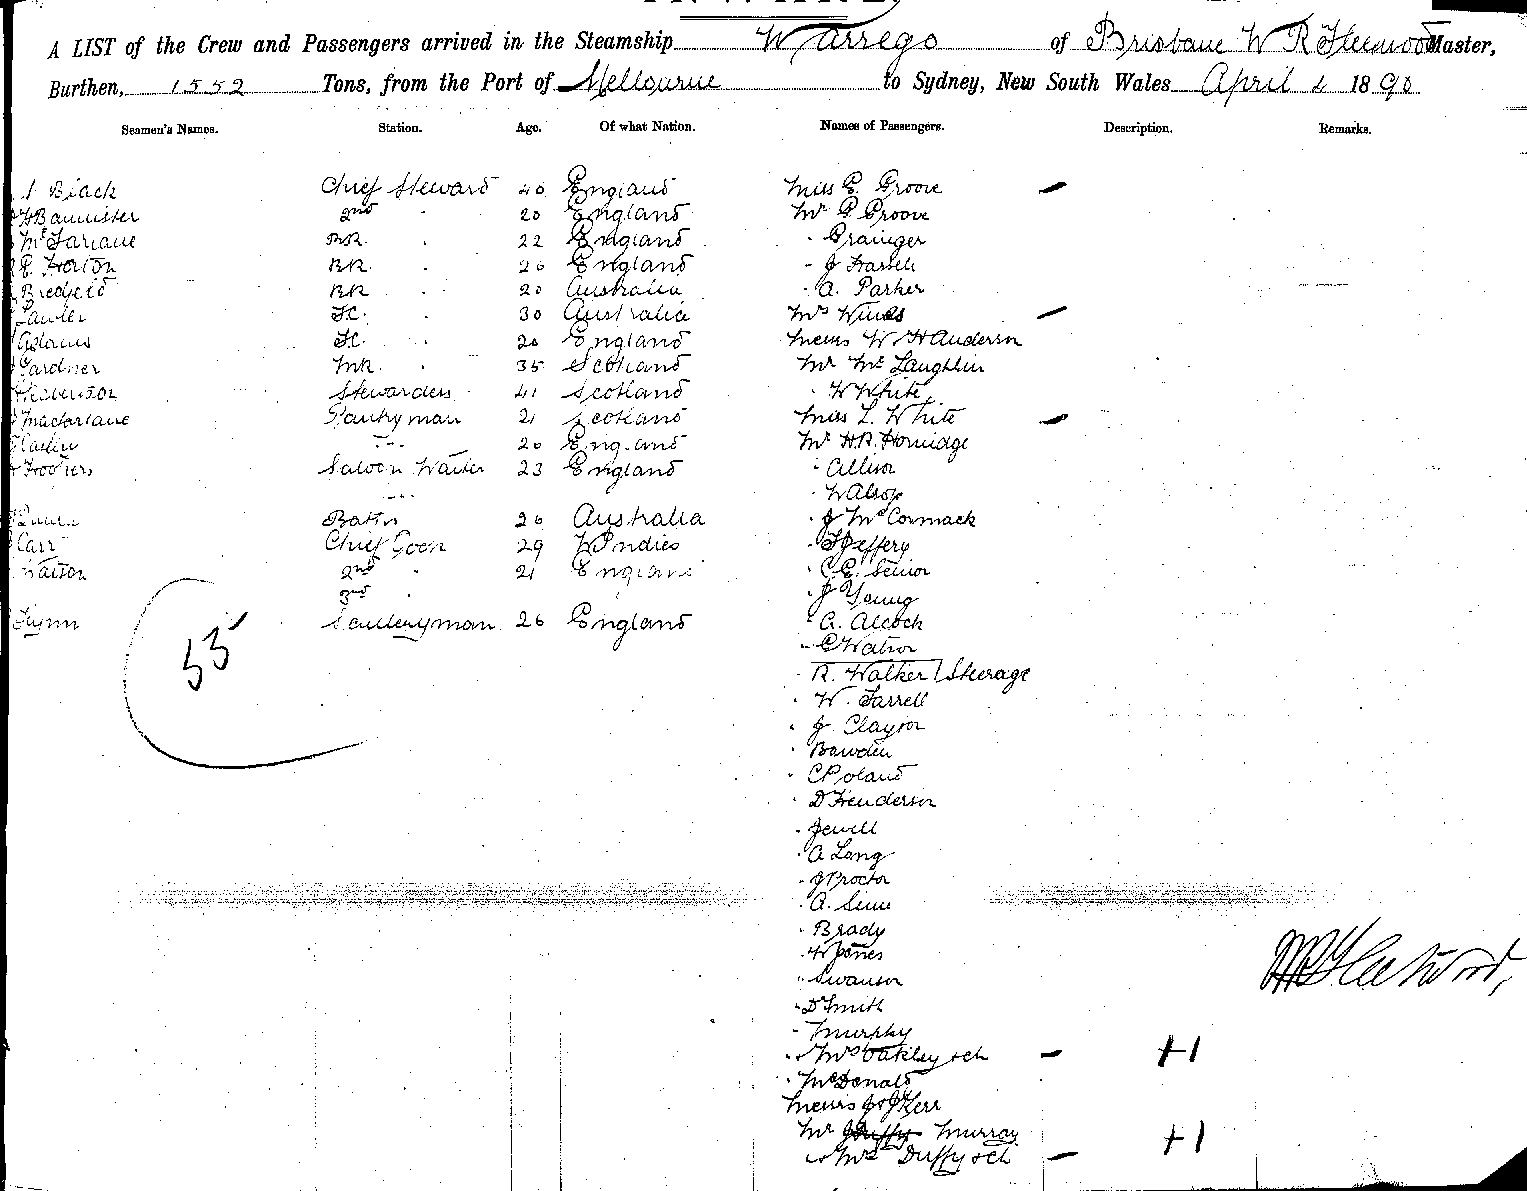 A LIST of the Crew and Passengers arrived in the Steamship Warrego of Brisbane W R Fleetwood Master,
Burthen, 1552 Tons, from the Port of Melbourne to Sydney, New South Wales April 2 1890
Seamen's Names. Station. Age. Of what Nation. Names of Passengers. Description. Remarks.
Black Chief Steward 40 England Miss E. Groove
Bannister 2nd " 20 England Mr G. Groove
McFarlane BR. " 22 England " Grainger
E. Horton BR. " 20 England " J
BR " 20 Australia " A. Parker
Lawler FC. " 30 Australia Mrs
Adams FC. " 20 England Messrs W H Anderson
Gardner MR. " 35 Scotland Mr McLaughlin
Stevenson Stewardess 41 Scotland " W White
Macfarlane Pantryman 21 Scotland Miss L. White
" 20 England Mr H.R. Hornidge
Saloon Waiter 23 England " Allison
" " Walsop
Quinn 20 Australia " J McCormack
Carr Chief Cook 29 W Indies " Jeffery
Watson 2nd " 21 England " C.E. Senior
3rd " " J Young
Flynn Scullery man 26 England " A. Alcock
55
" C Watson
" R. Walker / Steerage
" W. Farrell
" J. Clayton
" Bawden
" C Poland
" D Henderson
" Jewell
" A Lang
" J Proctor
" A.
" Brady
" W Jones
" Swanson
" D Smith
" Murphy
" Mrs Oakley & ch +1
" McDonald
Messrs J & J Kerr
Mr Duffy Murray +1
" Mrs Duffy & ch
W R Fleetwood,